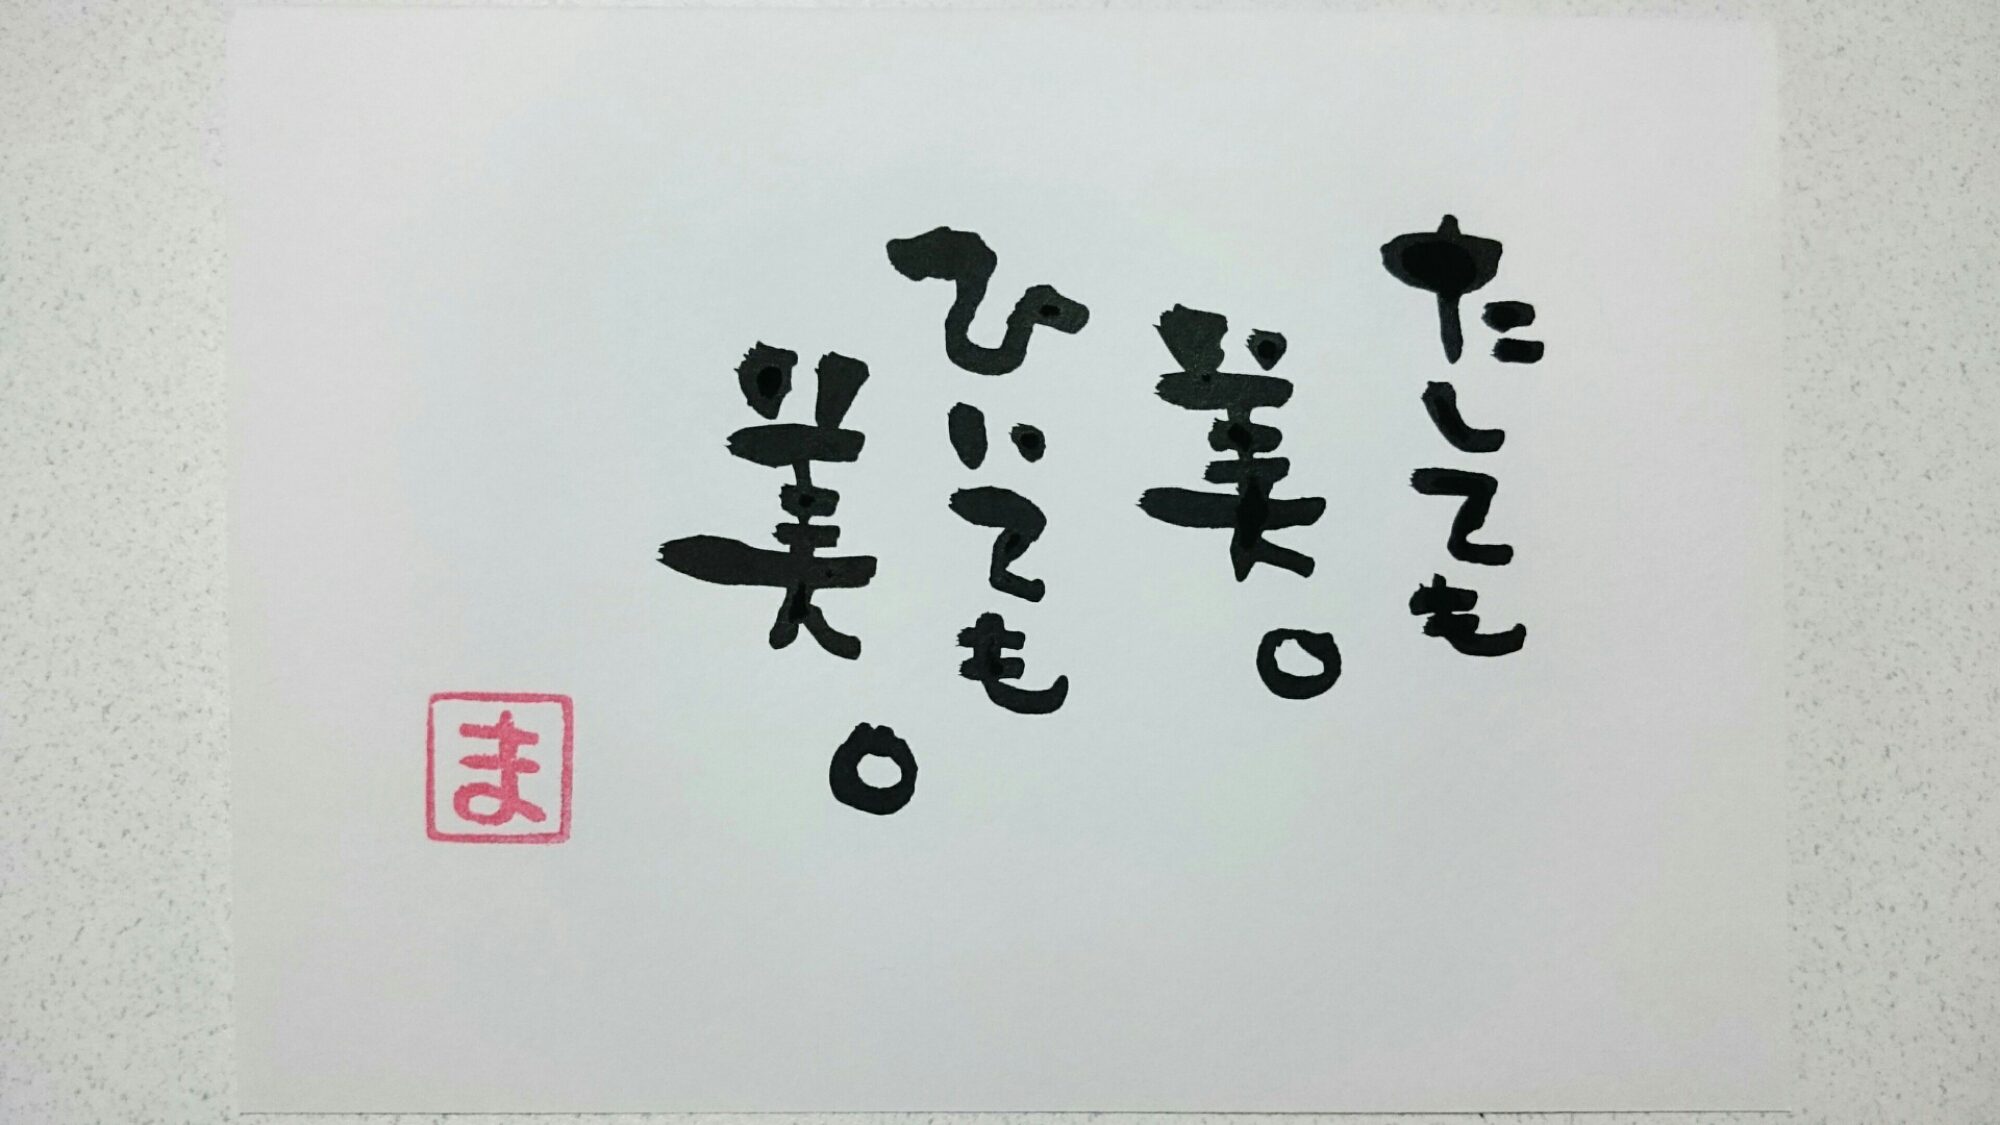 たしても
美。
ひいても
美。
ま